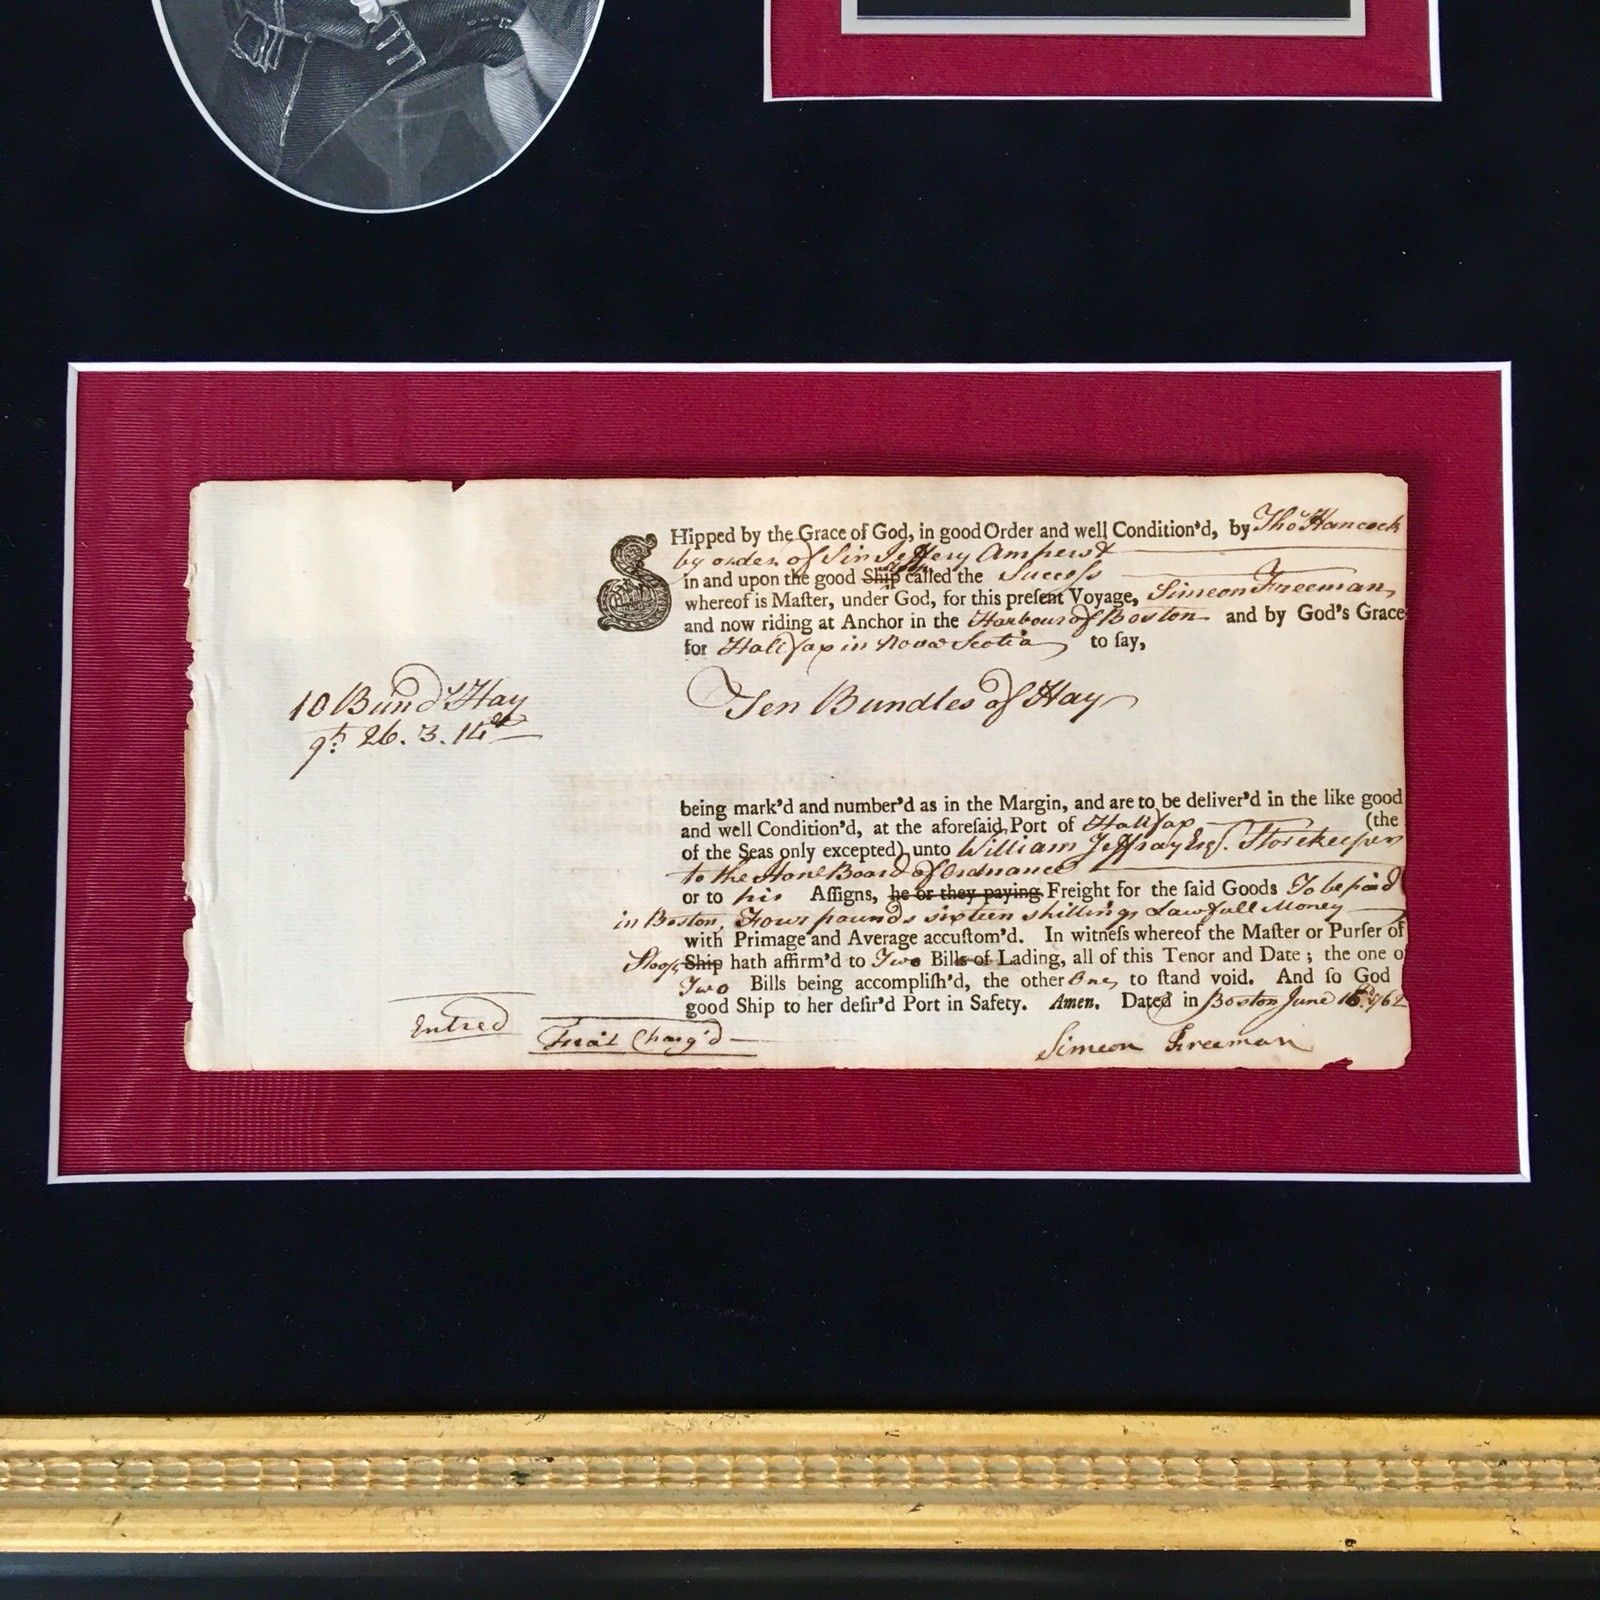 SHipped by the Grace of God, in good Order and well Condition'd, by Thos Hancock
by order of Sir Jeffery Amherst
in and upon the good Ship called the Success
whereof is Maſter, under God, for this preſent Voyage, Simeon Freeman,
and now riding at Anchor in the Harbour of Boston and by God's Grace
for Hallifax in Nova Scotia to ſay,
10 Bunds Hay
26. 3. 14
Ten Bundles of Hay
being mark'd and number'd as in the Margin, and are to be deliver'd in the like good
and well Condition'd, at the aforeſaid Port of Hallifax (the
of the Seas only excepted) unto William Jeffray Esqr. Storekeeper
to the Hone Board of Ordnance
or to his Aſſigns, he or they paying Freight for the ſaid Goods To be paid
in Boston, Four pounds sixteen shillings Lawfull Money
with Primage and Average accuſtom'd. In witneſs whereof the Maſter or Purſer of
Sloop Ship hath affirm'd to Two Bills of Lading, all of this Tenor and Date; the one o
Two Bills being accompliſh'd, the other One, to ſtand void. And ſo God
good Ship to her deſir'd Port in Safety. Amen. Dated in Boston June 16 1762
Entred Frait Charg'd
Simeon Freeman